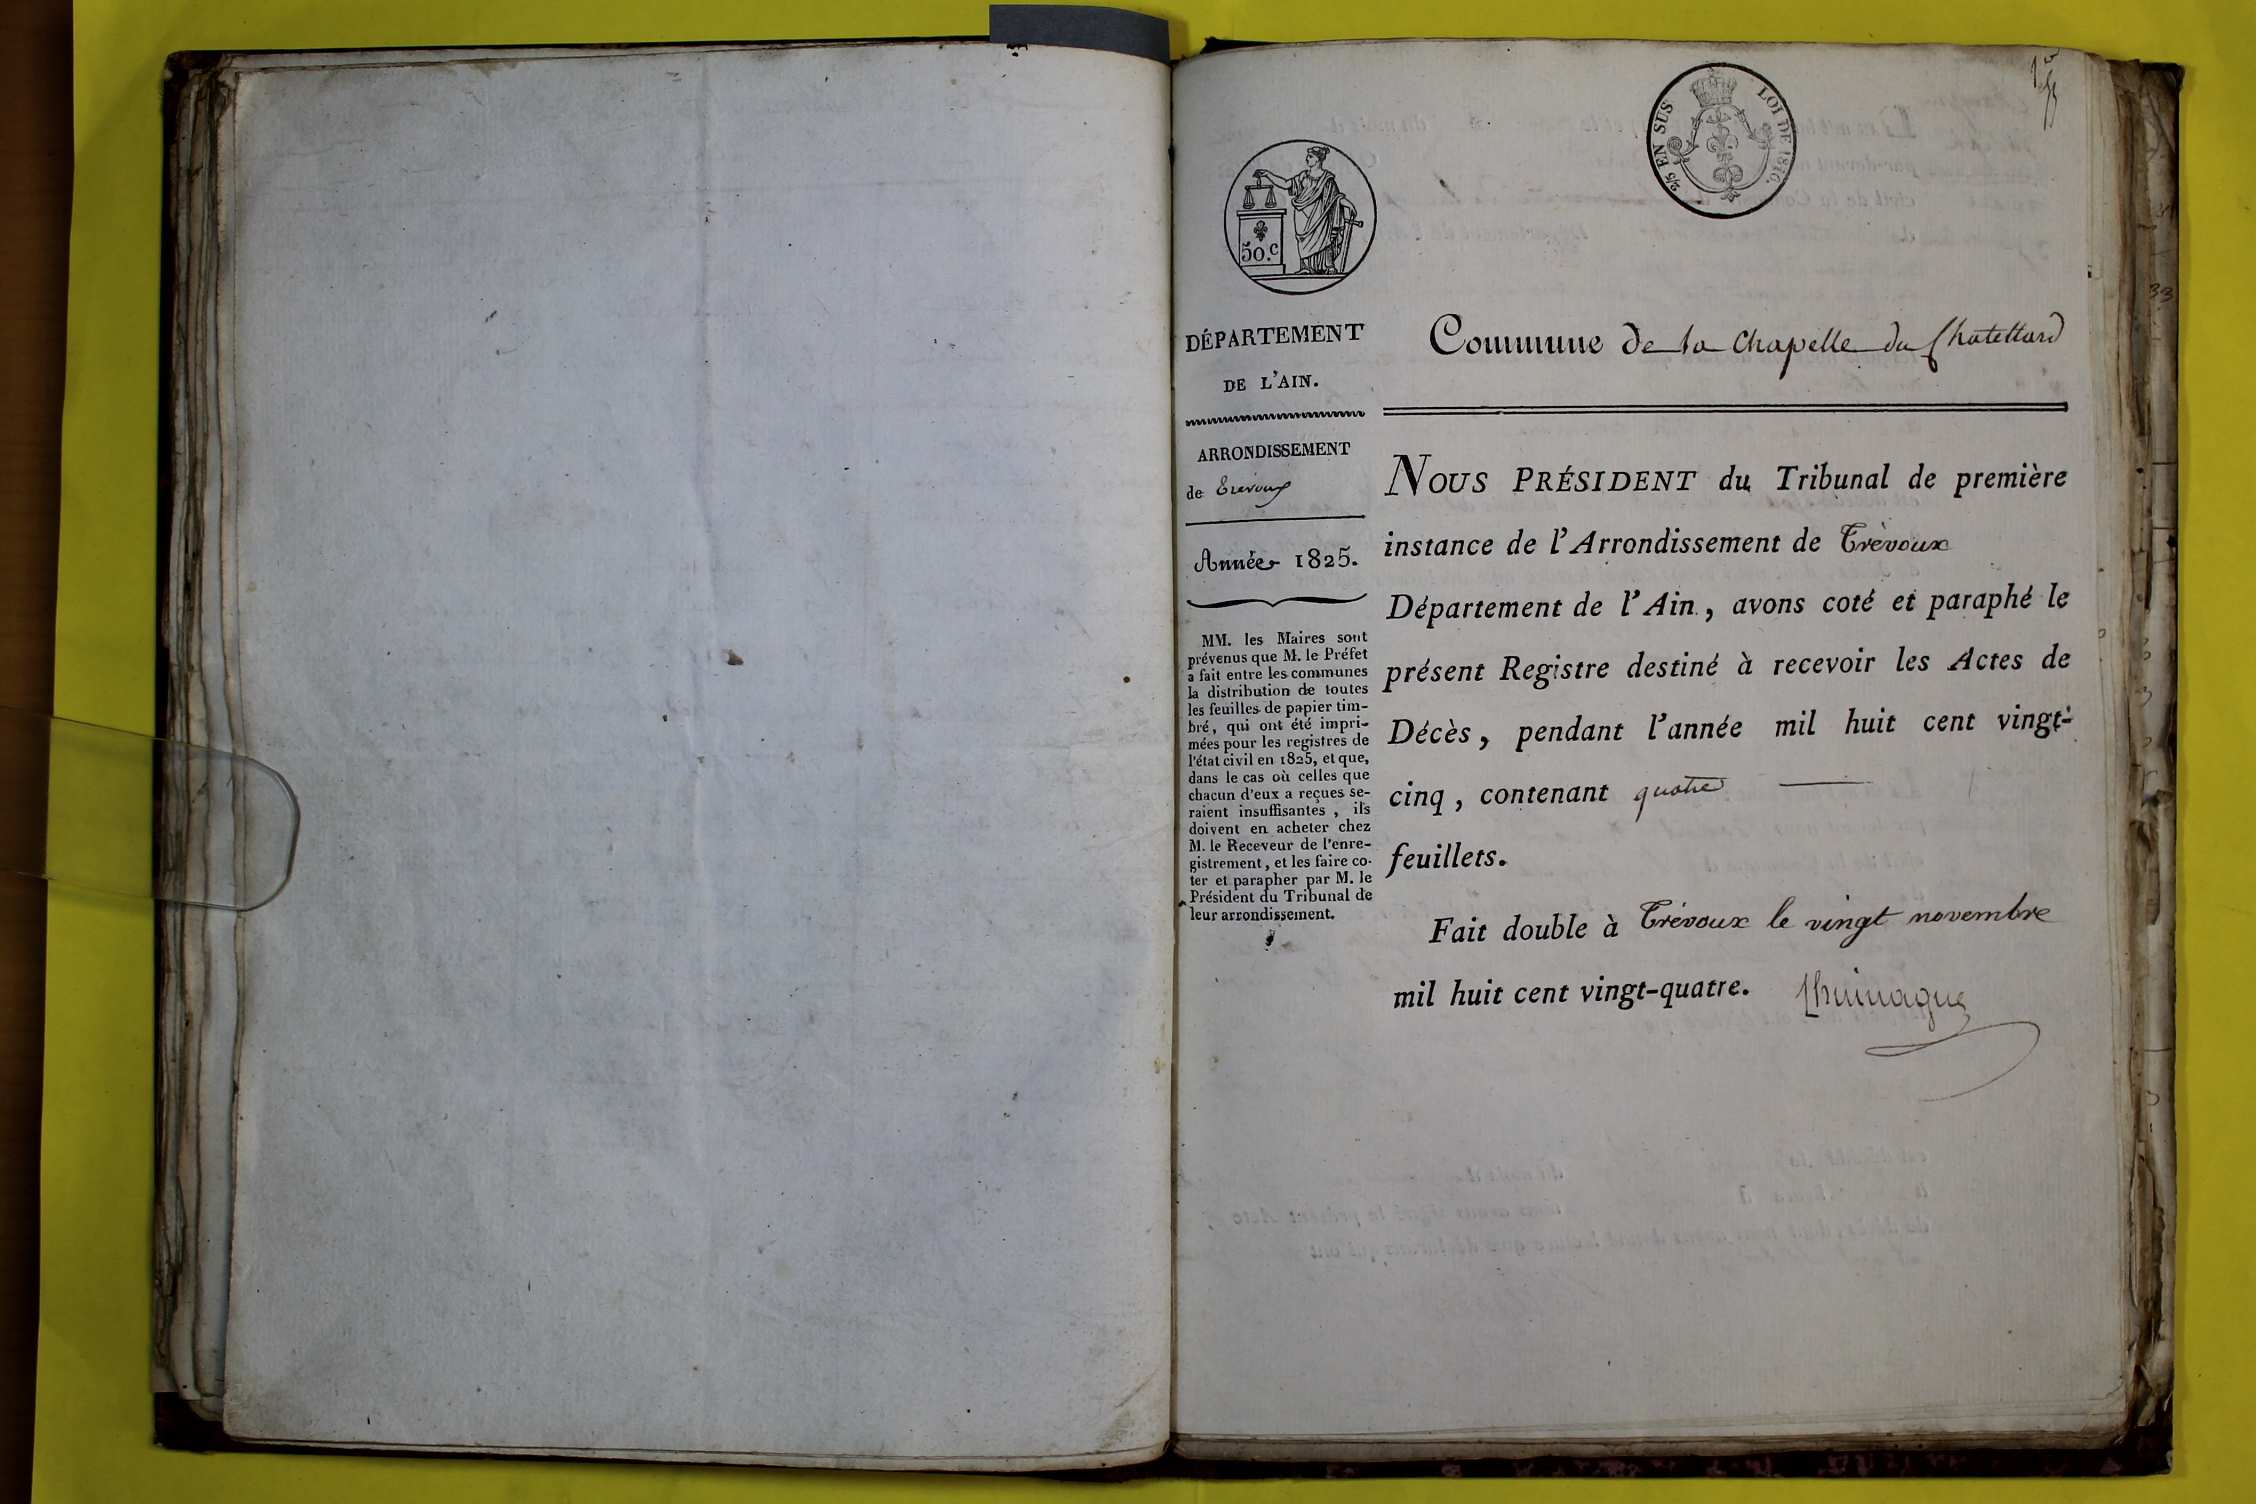 2/5 EN SUS LOI DE 1816.
50.c
DÉPARTEMENT
DE L'AIN.
ARRONDISSEMENT
de Trévoux
Année 1825.
MM. les Maires sont
prévenus que M. le Préfet
a fait entre les communes
la distribution de toutes
les feuilles de papier tim-
bré, qui ont été impri-
mées pour les registres de
l'état civil en 1825, et que,
dans le cas où celles que
chacun d'eux a reçues se-
raient insuffisantes, ils
doivent en acheter chez
M. le Receveur de l'enre-
gistrement, et les faire co-
ter et parapher par M. le
Président du Tribunal de
leur arrondissement.
Commune de la Chapelle du Chatellard
NOUS PRÉSIDENT du Tribunal de première
instance de l'Arrondissement de Trévoux
Département de l'Ain, avons coté et paraphé le
présent Registre destiné à recevoir les Actes de
Décès, pendant l'année mil huit cent vingt-
cinq, contenant quatre
feuillets.
Fait double à Trévoux le vingt novembre
mil huit cent vingt-quatre.
33